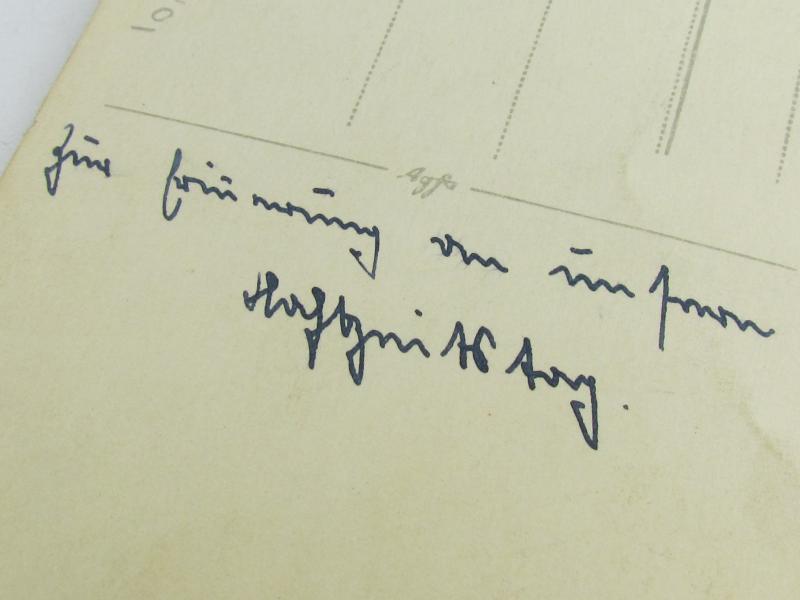 Agfa
Zur Erinnerung an unsern
Hochzeitstag.